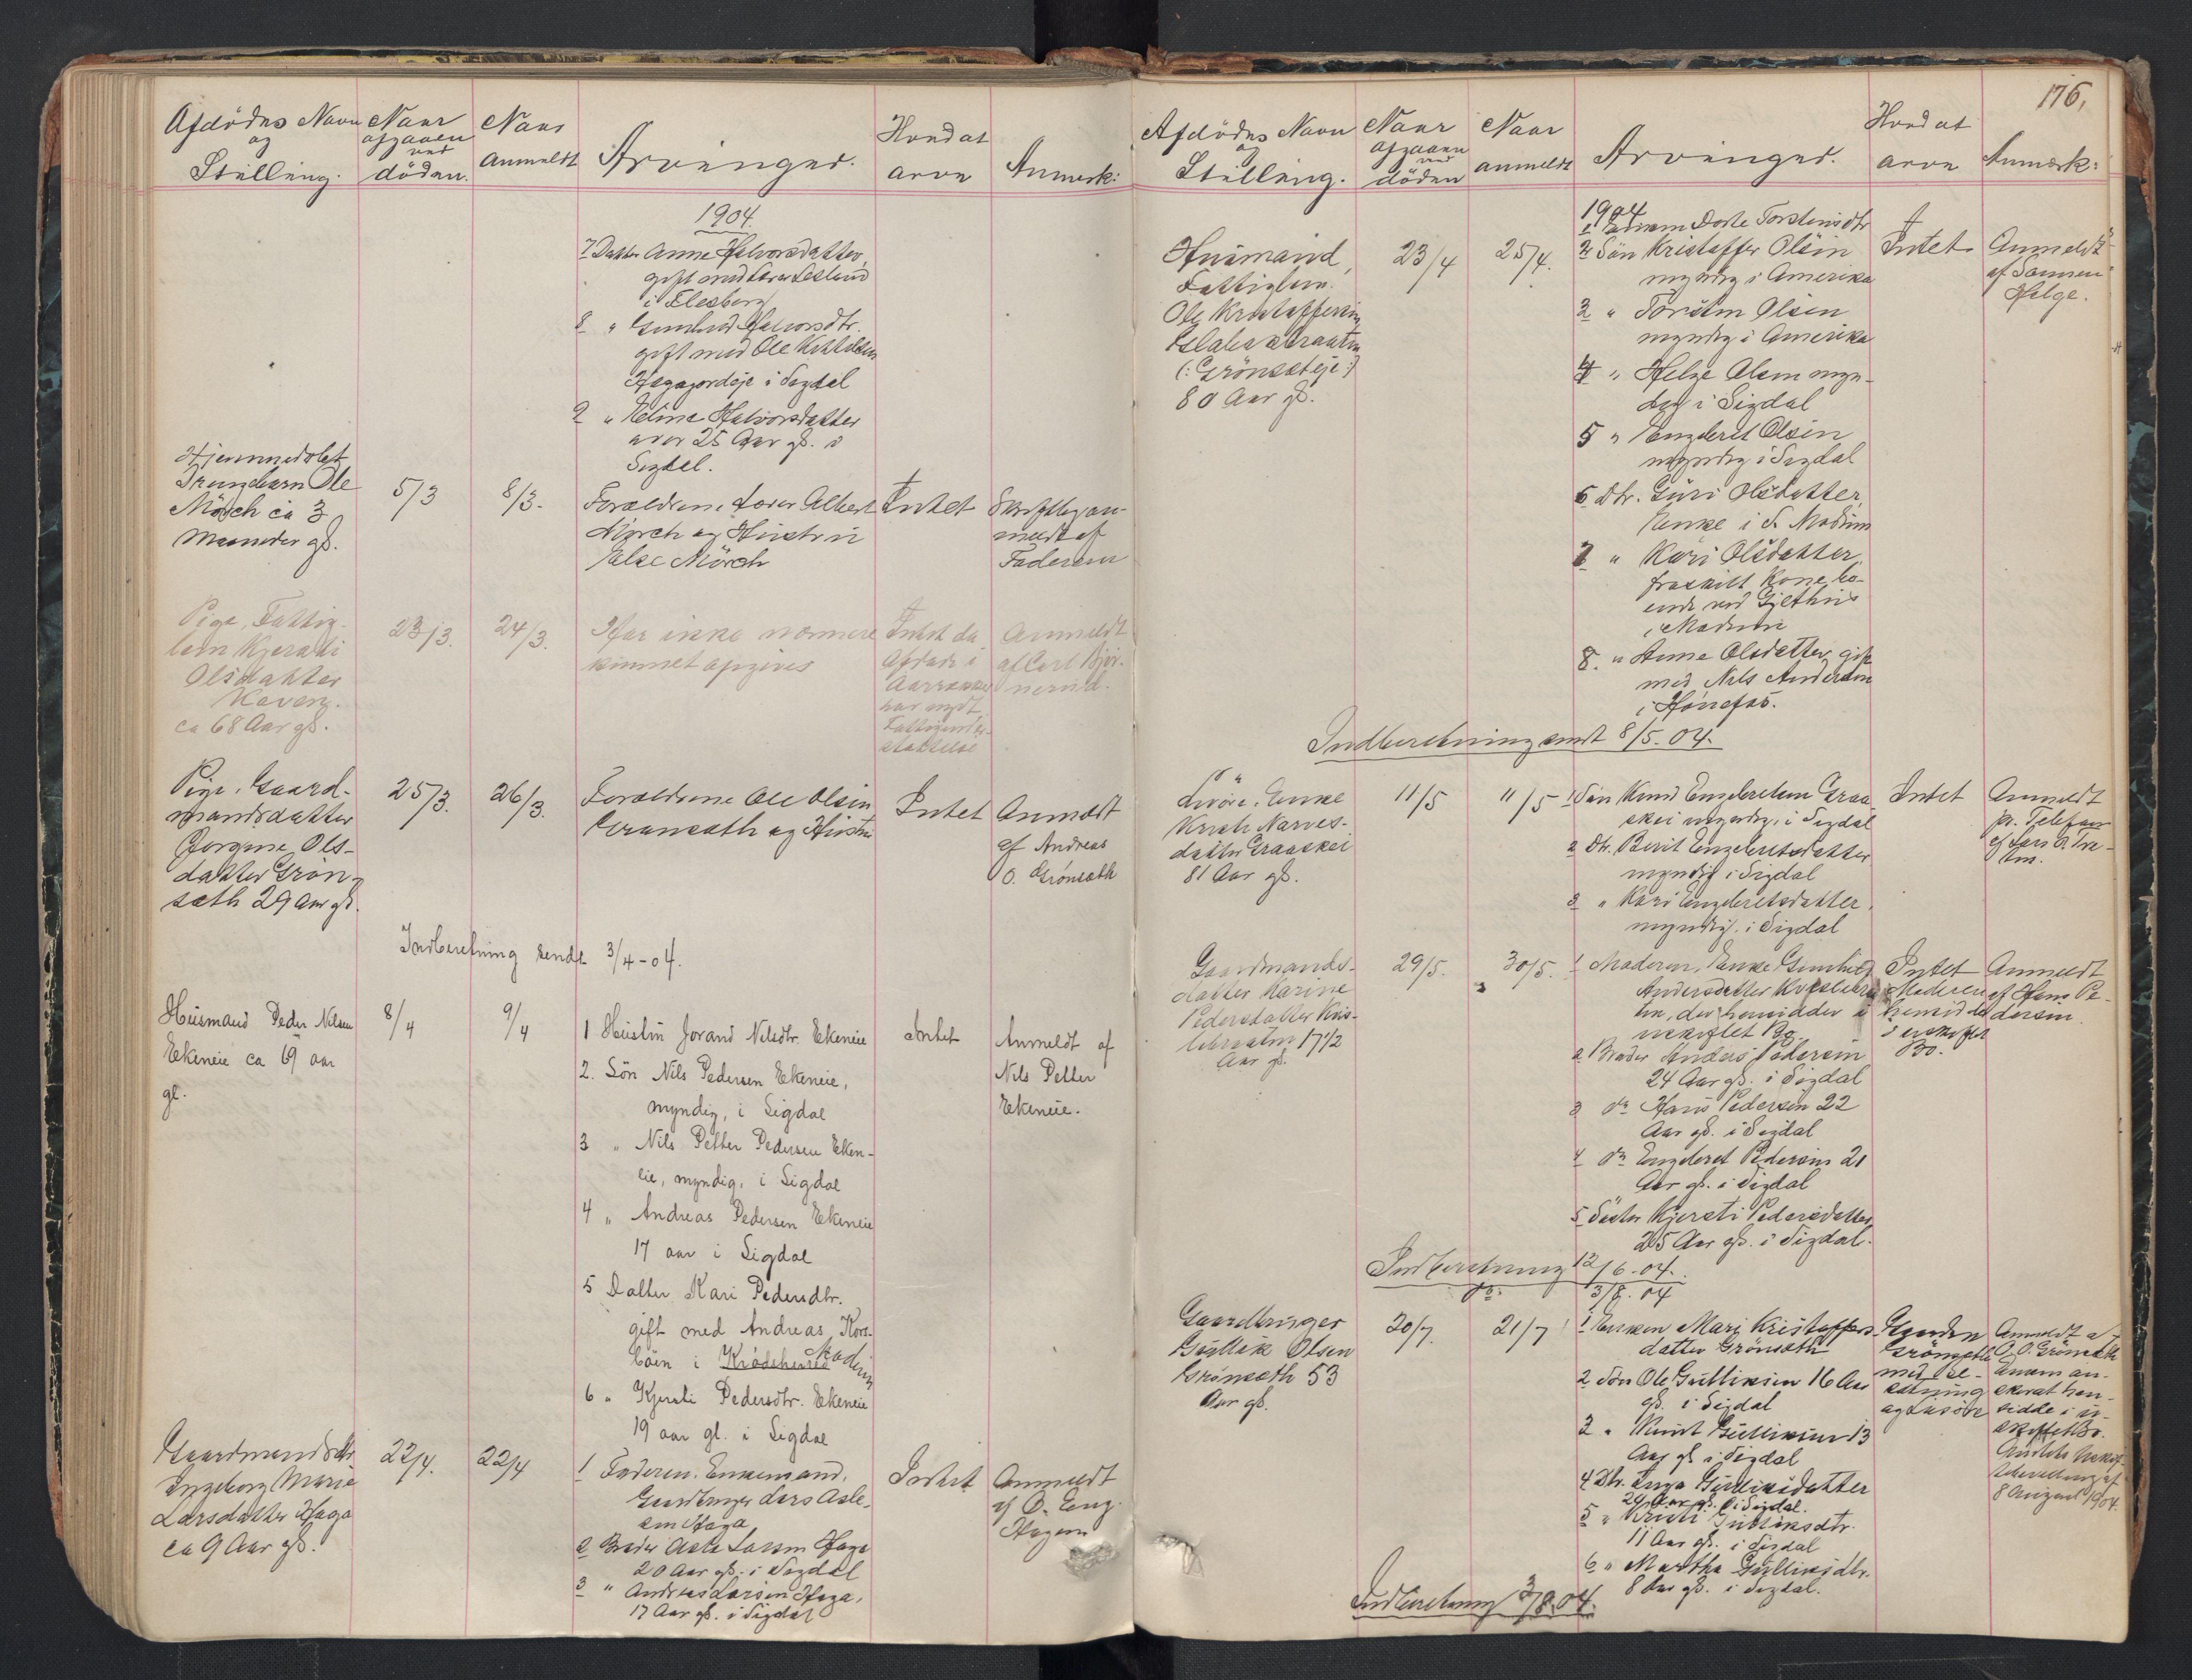 Afdödes Navn
og
Stilling.
Naar
afgaaen
ved
döden.
Naar
anmeldt
Arvinger.
Hvad at
arve
Anmærk:
1904.
7 Datter Anne Halvorsdatter,
gift med
i Flesberg
8 " Gunhild Halvorsdtr.
gift med Ole
i Sigdal
9 " Halvorsdatter
over 25 Aar gl. i
Sigdal.
Hjemmedøbt
Drengebarn Ole
Mörch ca 3
Maaneder gl.
5/3
8/3.
Forældrene Albert
Mörch og Hustru
Else Mörch
Intet
Skriftlig an-
meldt af
Faderen
Pige, Fattig-
lem Kjersti
Olsdatter
ca 68 Aar gl.
23/3.
24/3.
Har ikke nærmere
kunnet opgives
Intet da
Afdøde i
Aarrække
har nydt
Fattigunder-
støttelse
Anmeldt
af Carl
Pige, Gaard-
mandsdatter
Jorgine Ols-
datter Grön-
sæth 29 Aar gl.
25/3.
26/3.
Forældrene Ole Olsen
Grønsæth og Hustru
Intet
Anmeldt
af Andreas
O. Grönsæth
Indberetning sendt 3/4-04.
Husmand Peder Nilsen
Ekeneie ca 69 aar
gl.
8/4
9/4
1 Hustru Jorand Nilsdtr. Ekeneie
2. Sön Nils Pedersen Ekeneie,
myndig, i Sigdal
3 " Nils Petter Pedersen Eken-
eie, myndig, i Sigdal
4 " Andreas Pedersen Ekeneie
17 aar i Sigdal
5 Datter Kari Pedersdtr.
gift med Andreas Kors-
böen i Krödsherred Modum
6 " Kjersti Pedersdtr. Ekeneie
19 aar gl. i Sigdal
Intet
Anmeldt af
Nils Petter
Ekeneie.
Gaardmandsdtr.
Ingeborg Marie
Larsdatter Haga
ca 9 Aar gl.
22/4.
22/4
1 Faderen, Enkemand,
Gaardbruger Lars Asle-
sen Haga
2 Broder Asle Larsen Haga
20 Aar gl. i Sigdal
3 " Andreas Larsen Haga,
17 Aar gl. i Sigdal
Intet
Anmeldt
af O. Eng.
Hagen
176.
Afdödes Navn
og
Stilling.
Naar
afgaaen
ved
döden
Naar
anmeldt
Arvinger.
Hvad at
arve
Anmærk:
Husmand,
Fattiglem
Ole Kristoffersen
(: Grönsæteje :)
80 Aar gl.
23/4
25/4.
1904
1 Torstensdtr
2 Sön Kristoffer Olsen
myndig i Amerika
3 " Torsten Olsen
myndig i Amerika
4 " Helge Olsen myn-
dig i Sigdal
5 " Engebret Olsen
myndig i Sigdal
6 Dtr. Guri Olsdatter,
Enke i S. Modum
7 " Kari Olsdatter,
fraskilt Kone bo-
ende ved Gjethus
i Modum
8. " Anne Olsdatter, gift
med Nils Andersen
i Hønefos.
Intet
Anmeldt
af Sønnen
Helge.
Indberetning sendt 8/5-04.
Enke
Narves-
datter Graaskei
81 Aar gl.
11/5
11/5
1 Sön Knud Engebretsen Graa-
skei myndig, i Sigdal
2 Dtr. Berit Engebretsdatter
myndig i Sigdal
3 " Kari Engebretsdatter,
myndig, i Sigdal
Intet
Anmeldt
pr. Telefon
af Lars
Gaardmands-
datter Karine
Pedersdatter
17 1/2
Aar gl.
29/5.
30/5.
1 Moderen, Enke Gunhild
Andersdatter
der hensidder i
uskiftet Bo.
2 Broder Anders Pedersen
24 Aar gl. i Sigdal
3 do Hans Pedersen 22
Aar gl. i Sigdal
4 do Engebret Pedersen 21
Aar gl. i Sigdal
5 Søster Kjersti Pedersdatter
25 Aar gl. i Sigdal.
Intet
Moderen
hensidder
i uskiftet
Bo.
Anmeldt
af Hans Pe-
dersen.
Indberetning 12/6-04.
do. 3/7-04
Gaardbruger
Gullik Olsen
Grönsæth 53
Aar gl.
20/7.
21/7
1 Enken Mari Kristoffers-
datter Grönsæth
2 Sön Ole Gulliksen 16 Aar
gl. i Sigdal
3 " Knut Gulliksen 13
Aar gl. i Sigdal
4 Dtr. Inga Gulliksdatter
i Sigdal.
5 " Kristi Gulliksdtr.
11 Aar gl. i Sigdal
6 " Martha Gulliksdtr.
8 Aar gl. i Sigdal.
Gaarden
Grönsæth
med Be-
sætning
og Løsøre
Anmeldt af
A. O. Grönsæth
Enken an-
sidde i u-
skiftet Bo.
8 August 1904.
Indberetning 3/8.04.